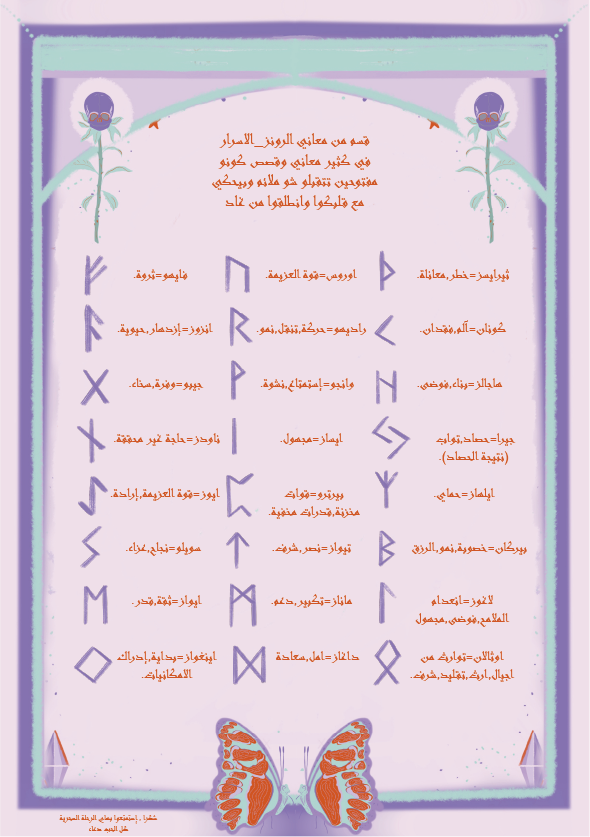 قسم من معاني الرونز_الاسرار
في كثير معاني وقصص كونو
مفتوحين تتقبلو شو ملائم وبيحكي
مع قلبكوا وانطلقوا من غاد
فايهو=ثروة.
اوروس=قوة العزيمة.
ثيرايسز=خطر,معاناة.
انزوز=إزدهار,حيوية.
راديهو=حركة,تنقل,نمو.
كونان=ألم,فقدان.
جيبو=وفرة,سخاء.
وانجو=إستمتاع,نشوة.
هاجالز=بناء,فوضى.
ناودز=حاجة غير محققة.
ايساز=مجهول.
جيرا=حصاد,ثواب
(نتيجة الحصاد).
ايوز=قوة العزيمة,إرادة.
بيرثرو=قوات
مخزنة,قدرات مخفية.
ايلهاز=حماي.
سويلو=نجاح,عزاء.
تيواز=نصر,شرف.
بيركان=خصوبة,نمو,الرزق
ايواز=ثقة,قدر.
ماناز=تكبير,دعم.
لاغوز=انعدام
الملامح,فوضى,مجهول
اينغواز=بداية,إدراك
الامكانيات.
داغاز=امل,سعادة
اوثالان=توارث من
اجيال,ارث,تقليد,شرف.
شكرا , إستمتعوا بهاي الرحلة السحرية
كل الحب دعاء